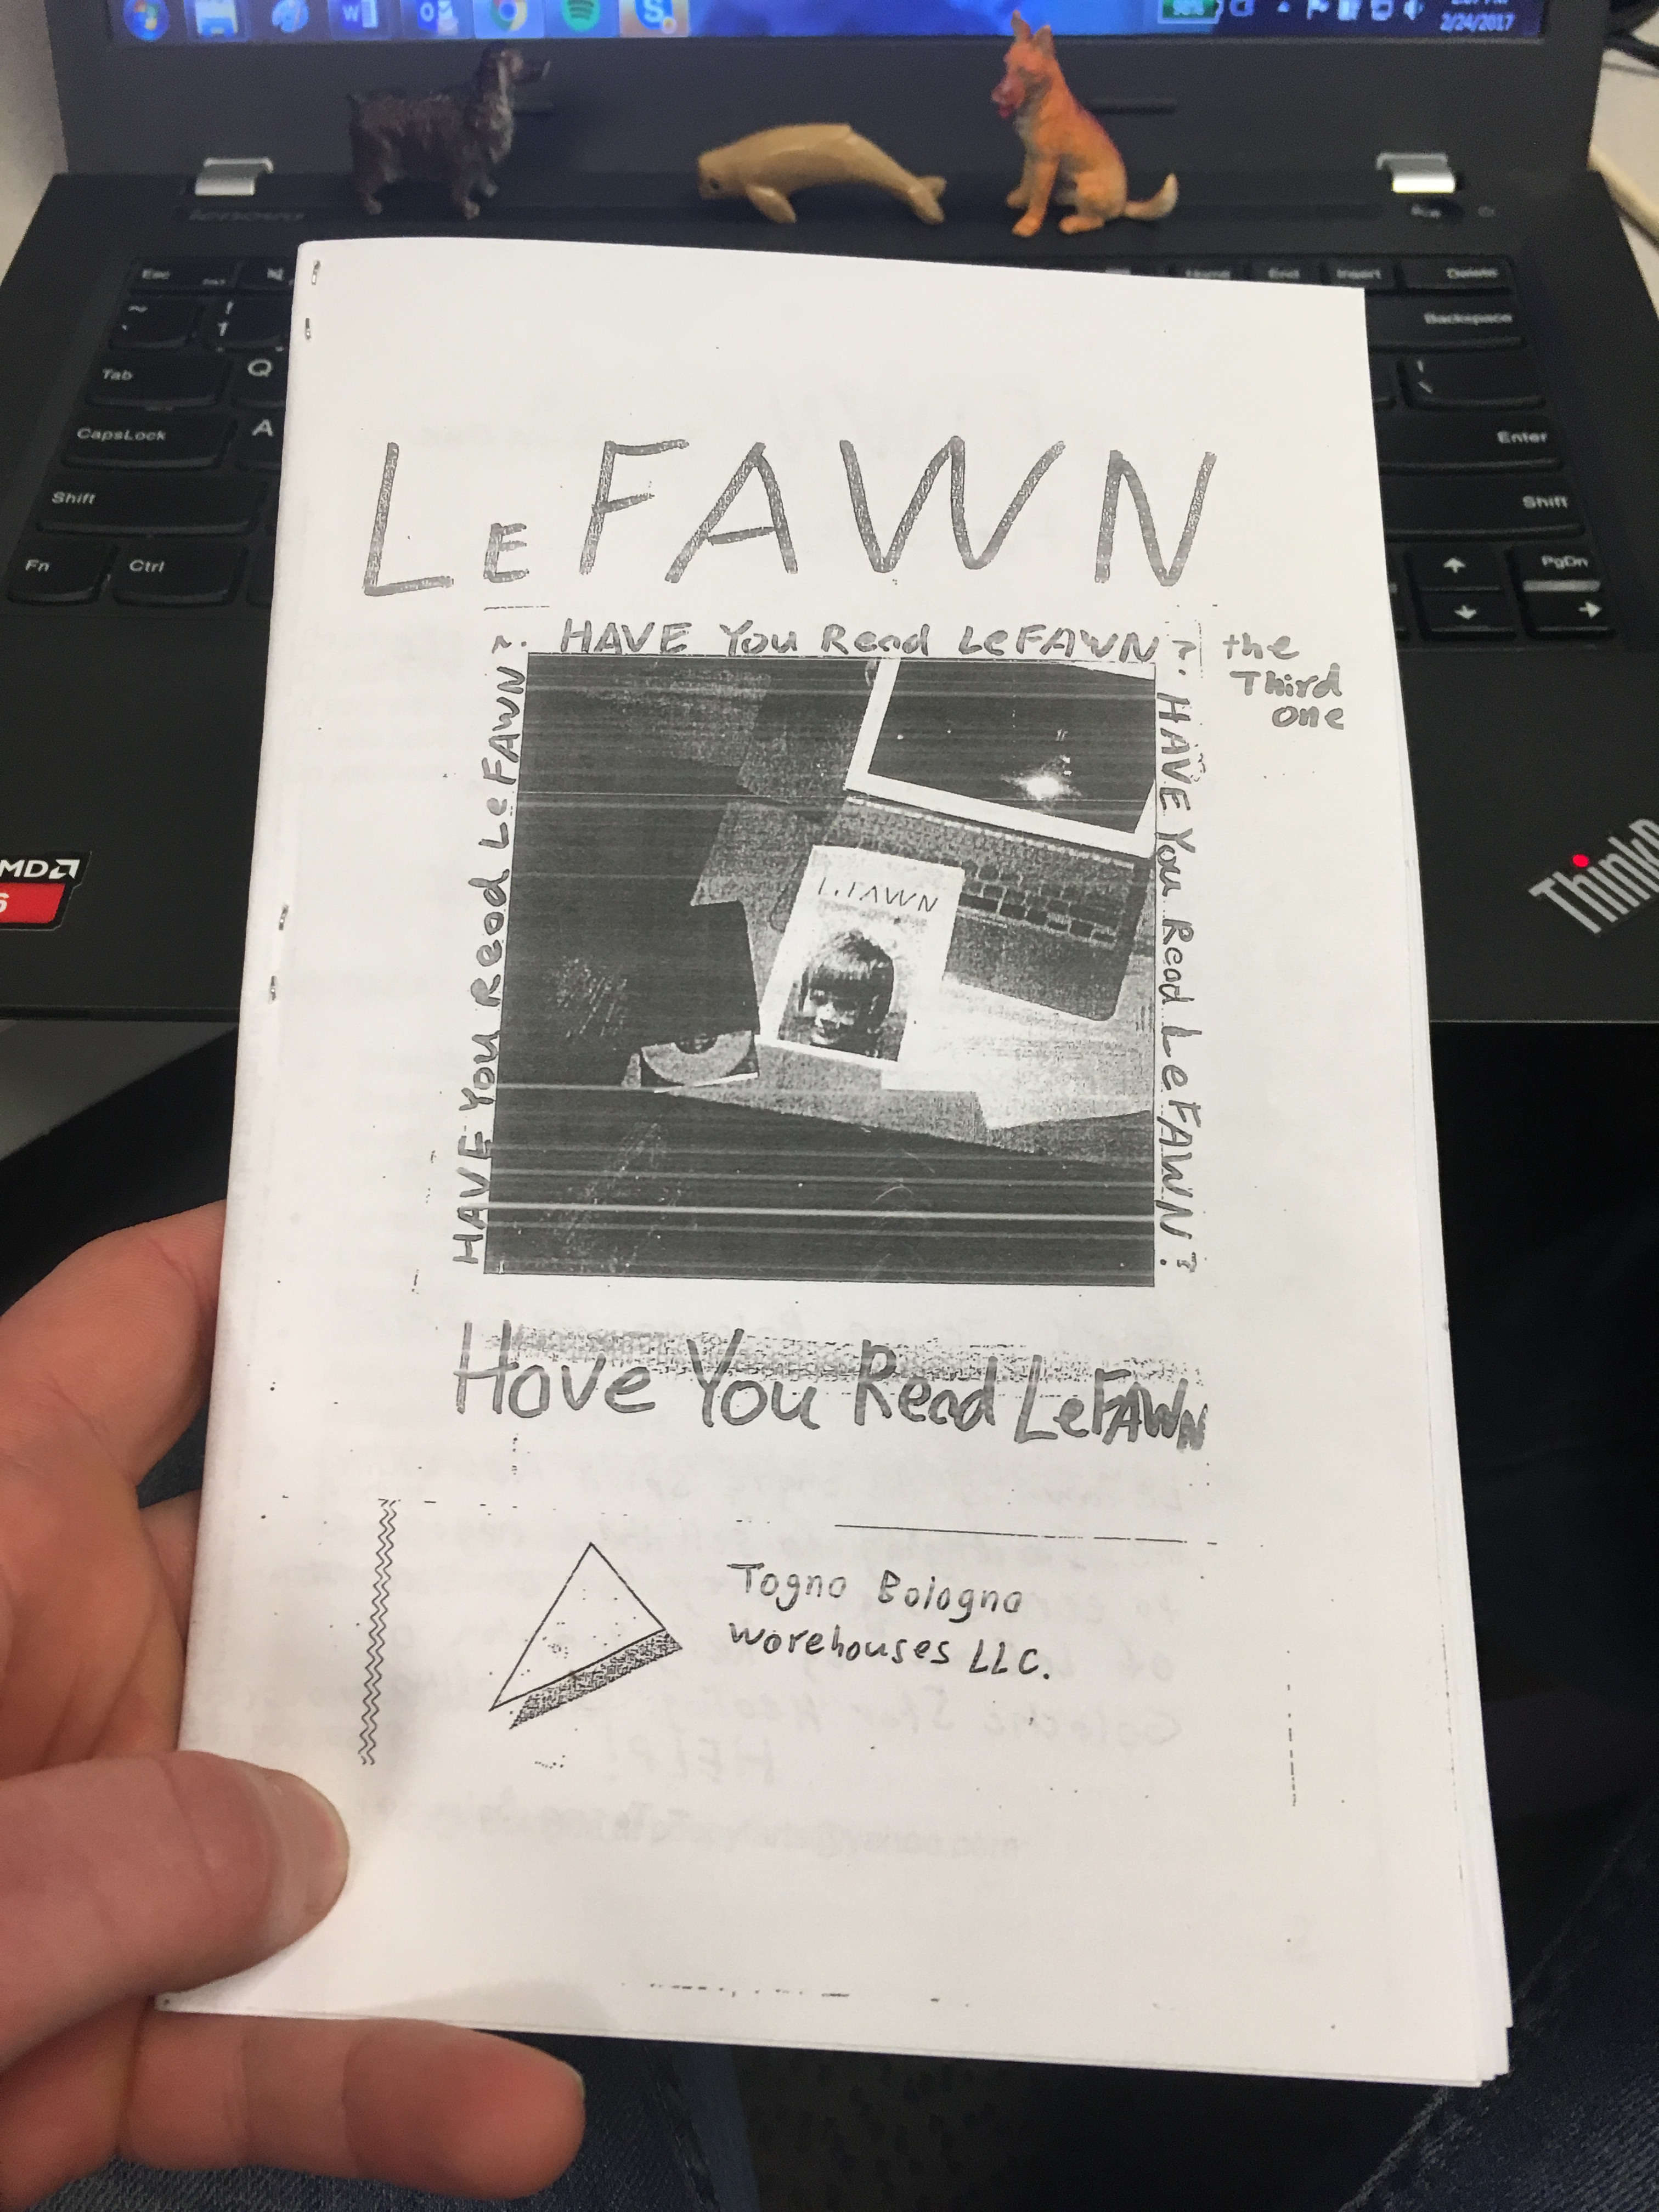 2/24/2017
lenovo
Esc
Home
End
Insert
Delete
~
!
1
Backspace
Tab
Q
CapsLock
A
Enter
Shift
Shift
Fn
Ctrl
PgDn
AMD
ThinkP
LeFAWN
HAVE You Read LeFAWN?
the
Third
One
HAVE You Read LeFAWN?
HAVE You Read LeFAWN?
LeFAWN
Have You Read LeFAWN
Togna Bologna
Warehouses LLC.